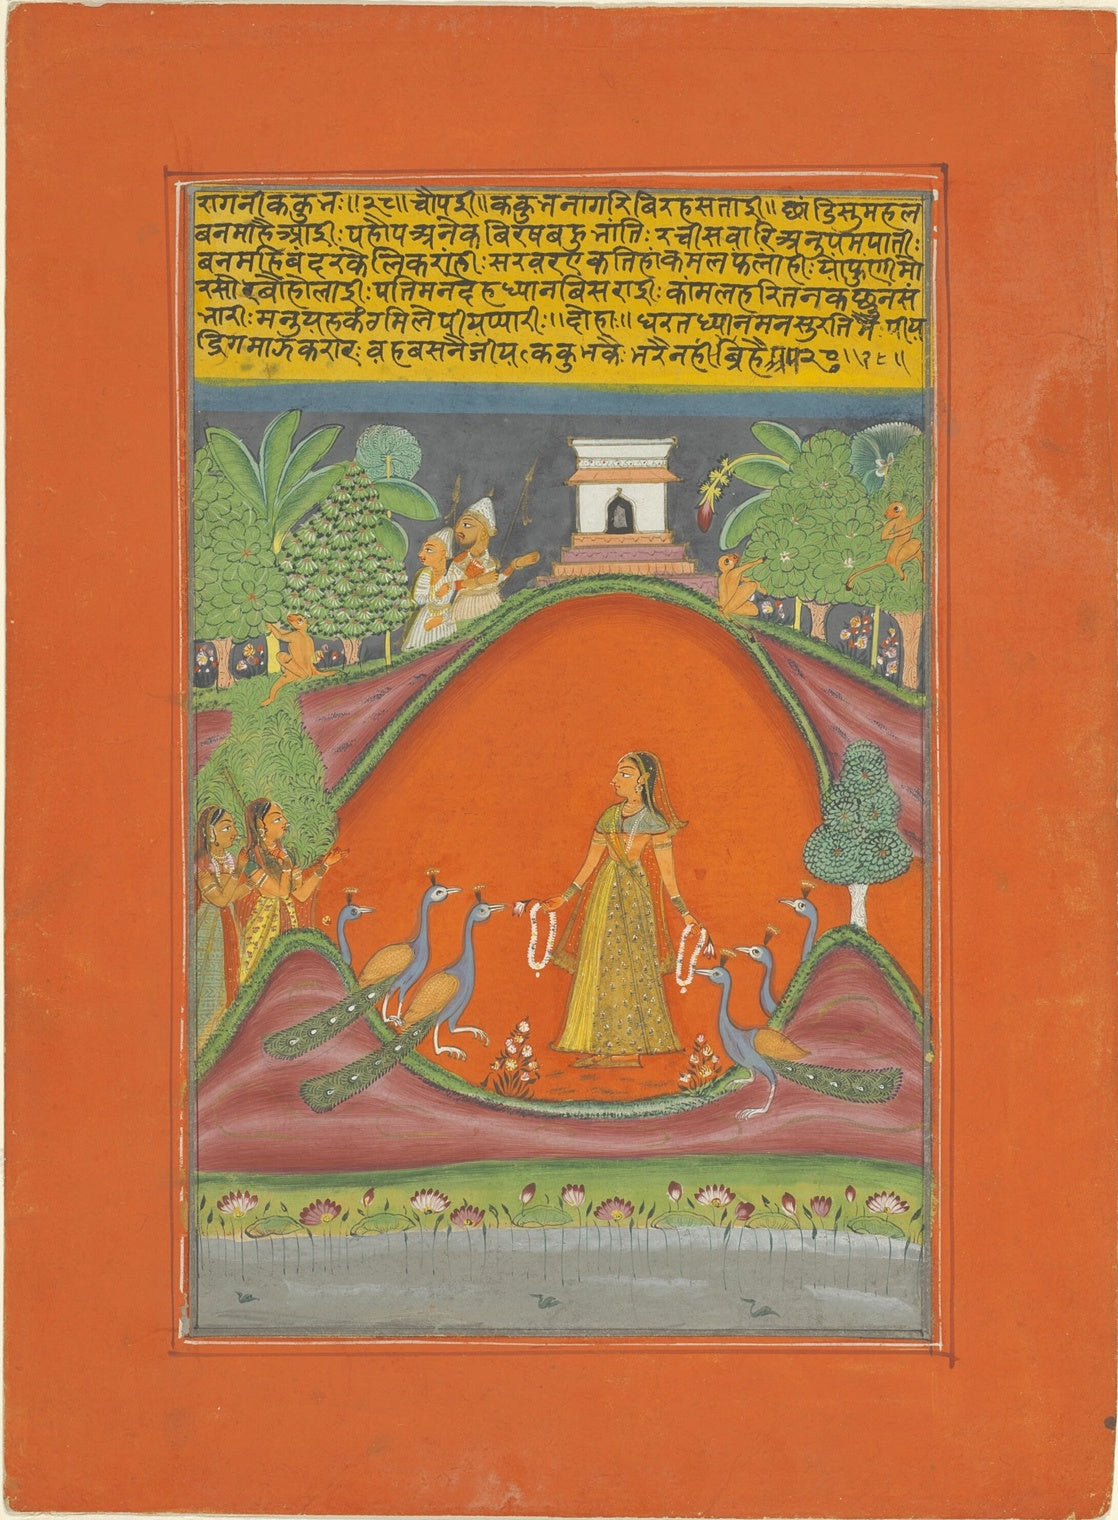 रागनी ककुभः॥२८॥ चौपई॥ ककुभ नागरि बिरह सताई॥ छांडि सु महल
बन माहै आई: पहौप अनेक बिरष बहु भांति: रची सवारि अनुपम पाती:
बन महि बंदर केलि करांही: सरवर एक तिहां कमल फलाही:
पति मन देह ध्यान बिसराई: कांमल हरि तन कछु न सं
भारी: मनु यह कंग मिले पीय प्यारी:॥ दोहा:॥ धरत ध्यान मन सुरति मै पीय
द्रिग करार: वह बसनै जीय ककुभ कै भरै नही